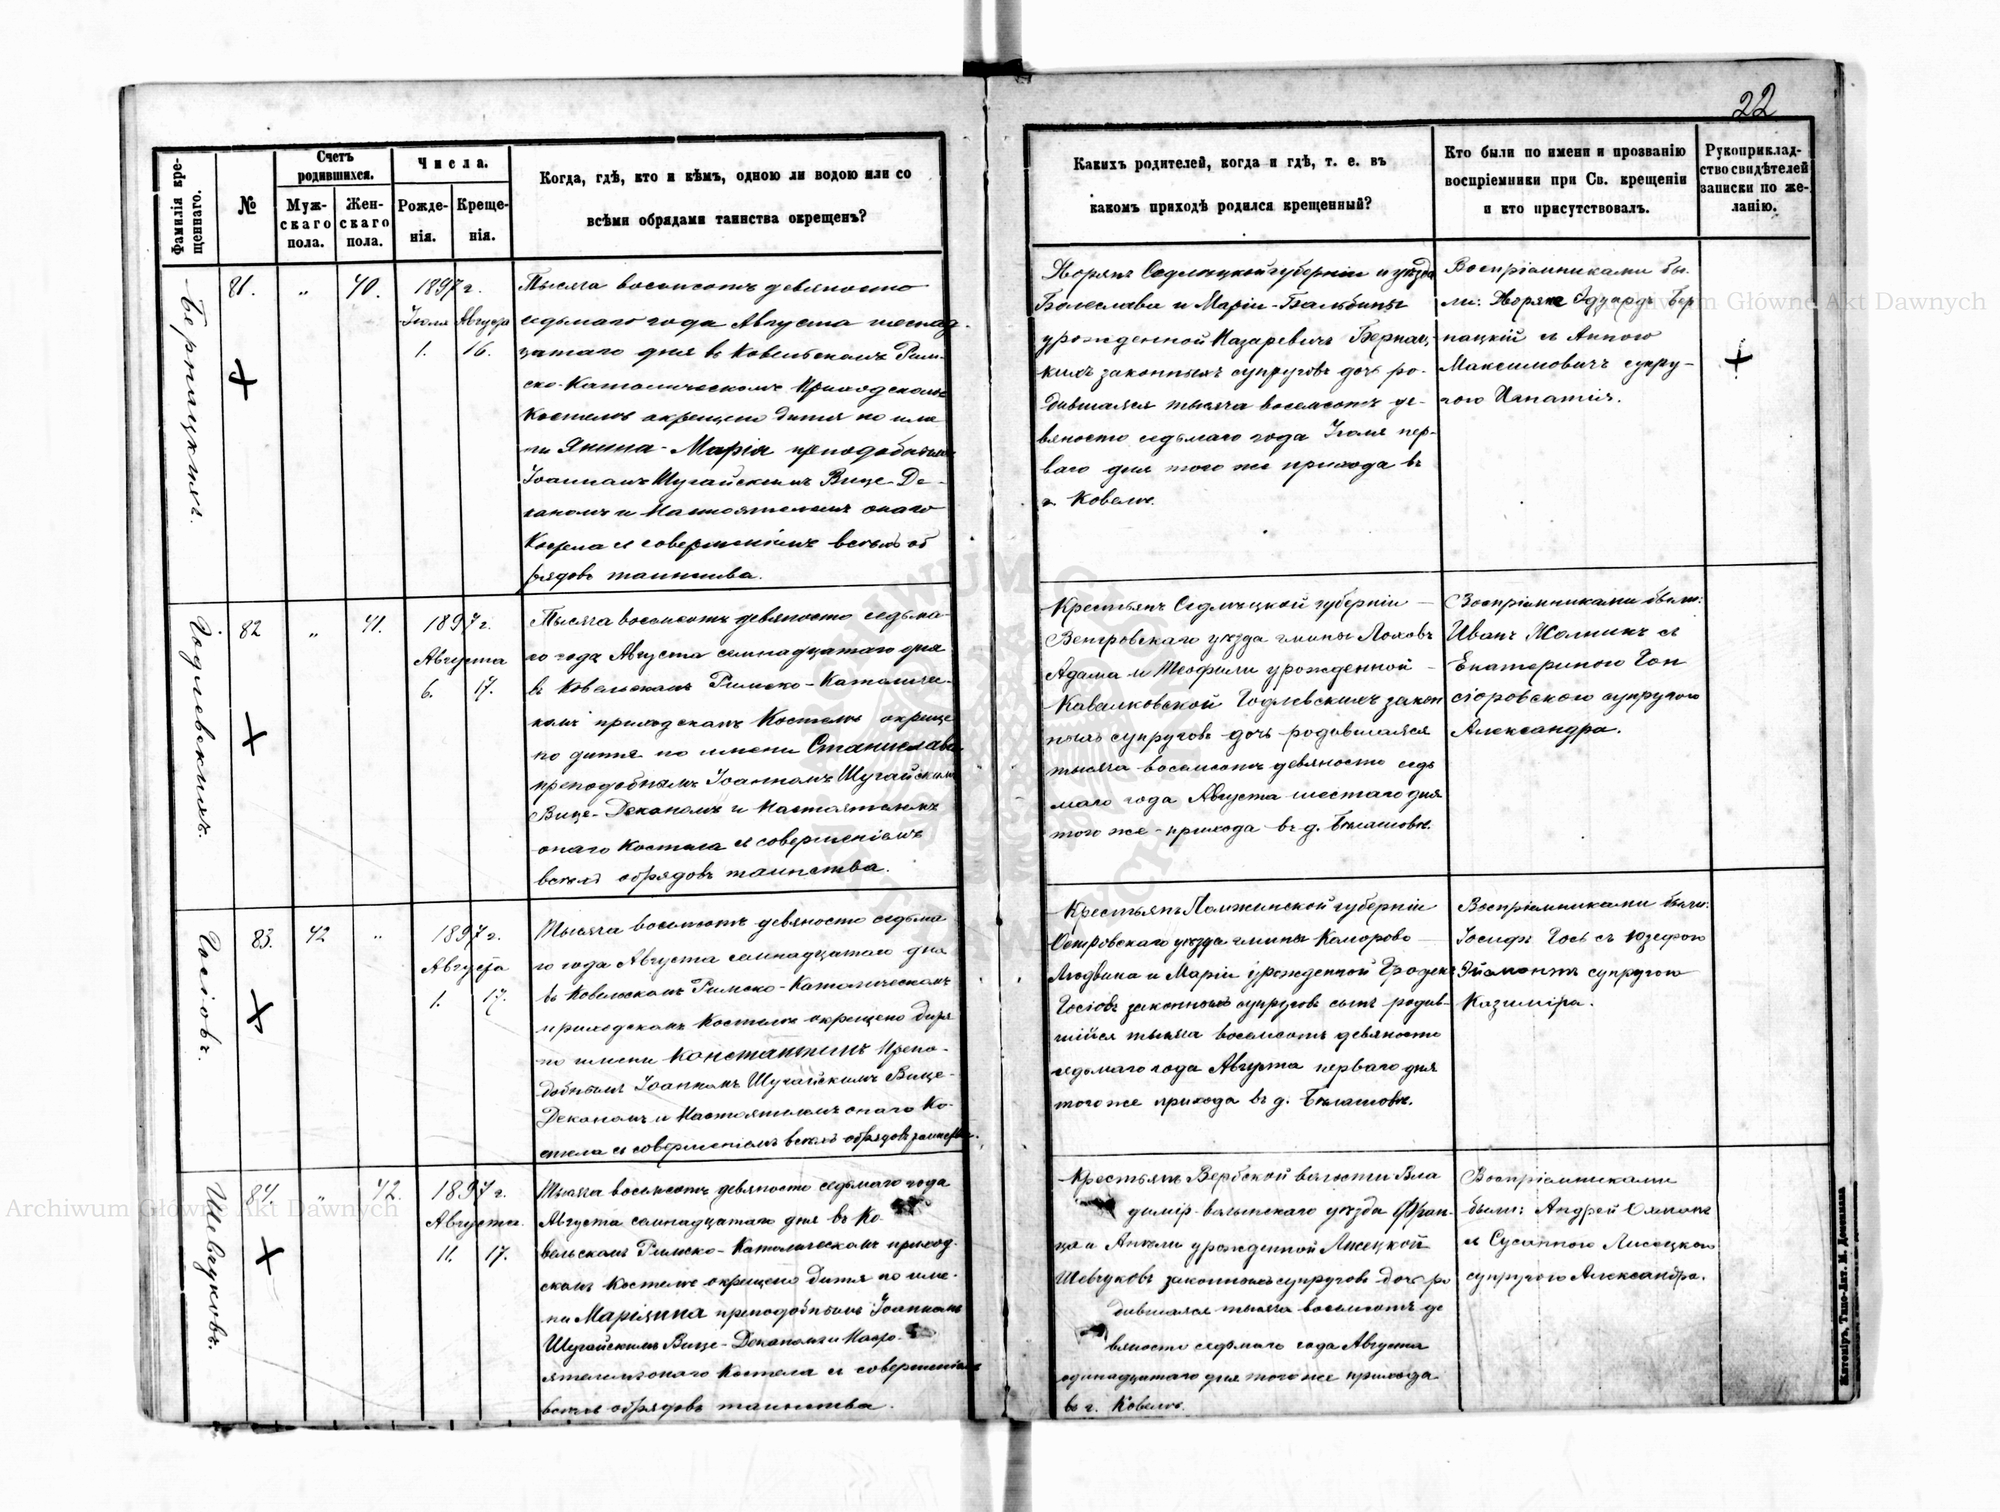 22
Фамилія кре-
щеннаго.
№
Счетъ
родившихся.
Муж-
скаго
пола.
Жен-
скаго
пола.
Числа.
Рожде-
нія.
Креще-
нія.
Когда, гдѣ, кто и кѣмъ, одною ли водою или со
всѣми обрядами таинства окрещенъ?
Каких родителей, когда и гдѣ, т. е. въ
какомъ приходѣ родился крещенный?
Кто были по имени и прозванію
воспріемники при Св. крещеніи
и кто присутствовалъ.
Рукоприклад-
ство свидѣтелей
записки по же-
ланію.
Бернацкихъ.
81.
"
40.
1897 г.
Іюля Августа
1. 16.
Тысяча восемсотъ девяносто
седьмаго года Августа шестнад-
цатаго дня въ Ковельскомъ Рим-
ско-Католическомъ Приходскомъ
Костелѣ окрещено дитя по име
ни Янина-Марія преподобнымъ
Іоанномъ Шугайскимъ Вице-Де-
каномъ и Настоятелемъ онаго
Костела съ совершеніемъ всѣхъ об
рядовъ таинства.
Дворянъ Седлецкой губерніи и уѣзда
Болеслава и Маріи-Бальбины
урожденной Назаревичъ Бернац-
кихъ законныхъ супруговъ дочь ро-
дившаяся тысяча восемсотъ де-
вяносто седьмаго года Іюля пер-
ваго дня того же прихода въ
г. Ковелѣ.
Воспріемниками бы-
ли: Дворяне Эдуардъ Бер
нацкій съ Анною
Максимовичъ супру-
гою Игнатія.
Годлевскихъ.
82
"
41.
1897 г.
Августа
6. 17.
Тысяча восемсотъ девяносто седьма-
го года Августа семнадцатаго дня
въ Ковельскомъ Римско-Католичес-
комъ приходскомъ Костелѣ окреще
но дитя по имени Станислава
преподобнымъ Іоанномъ Шугайскимъ
Вице-Деканомъ и Настоятелемъ
онаго Костела съ совершеніемъ
всѣхъ обрядовъ таинства.
Крестьянъ Седлецкой губерніи
Венгровскаго уѣзда гмины Лоховъ
Адама и Теофили урожденной
Кавалковской Годлевскихъ закон
ныхъ супруговъ дочь родившаяся
тысяча восемсотъ девяносто седь
маго года Августа шестаго дня
того же прихода въ д.
Воспріемниками были:
Иванъ съ
Екатериною Гон
сіоровскою супругою
Александра.
Госіовъ.
83.
42
"
1897 г.
Августа
1. 17.
Тысяча восемсотъ девяносто седьма
го года Августа семнадцатаго дня
въ Ковельскомъ Римско-Католическомъ
приходскомъ Костелѣ окрещено дитя
по имени Константинъ Препо-
добнымъ Іоанномъ Шугайскимъ Вице-
Деканомъ и Настоятелемъ онаго Ко-
стела съ совершеніемъ всѣхъ обрядовъ таинства.
Крестьянъ Ломжинской губерніи
Островскаго уѣзда гмины Коморово
Людвика и Маріи урожденной
Госіовъ законныхъ супруговъ сынъ родив-
шійся тысяча восемсотъ девяносто
седьмаго года Августа перваго дня
того же прихода въ д.
Воспріемниками были:
Іосифъ Гось съ Юзефою
супругою
Казиміра.
Шевчуковъ.
84.
"
42.
1897 г.
Августа
11. 17.
Тысяча восемсотъ девяносто седьмаго года
Августа семнадцатаго дня въ Ко-
вельскомъ Римско-Католическомъ приход-
скомъ Костелѣ окрещено дитя по име-
ни Маріянна преподобнымъ Іоанномъ
Шугайскимъ Вице-Деканомъ и Насто-
ятелемъ онаго Костела съ совершеніемъ
всѣхъ обрядовъ таинства.
Крестьянъ Вербской волости Вла
димір-волынскаго уѣзда Фран-
ца и Анели урожденной Лисецкой
Шевчуковъ законныхъ супруговъ дочь ро
дившаяся тысяча восемсотъ де
вяносто седьмаго года Августа
одинадцатаго дня того же прихода
въ г. Ковелѣ.
Воспріемниками
были: Андрей
съ Сусанною Лисецкою
супругою Александра.
Житоміръ, Типо-Лит. М. Дененмана
Archiwum Główne Akt Dawnych
Archiwum Główne Akt Dawnych